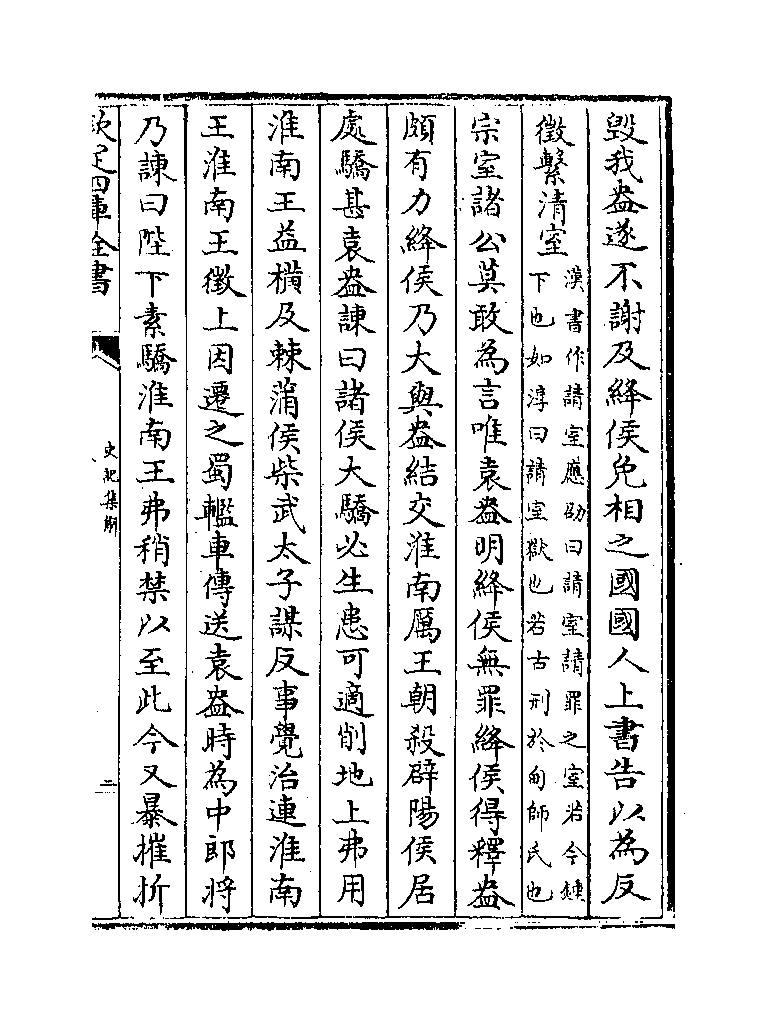 毁我盎遂不謝及絳侯免相之國國人上書告以為反
徵繫清室
漢書作請室應劭曰請室請罪之室若今鍾
下也如淳曰請室獄也若古刑於甸師氏也
宗室諸公莫敢為言唯袁盎明絳侯無罪絳侯得釋盎
頗有力絳侯乃大與盎結交淮南厲王朝殺辟陽侯居
處驕甚袁盎諫曰諸侯大驕必生患可適削地上弗用
淮南王益橫及棘蒲侯柴武太子謀反事覺治連淮南
王淮南王徵上因遷之蜀轞車傳送袁盎時為中郎將
乃諫曰陛下素驕淮南王弗稍禁以至此今又暴摧折
欽定四庫全書
史記集解
二